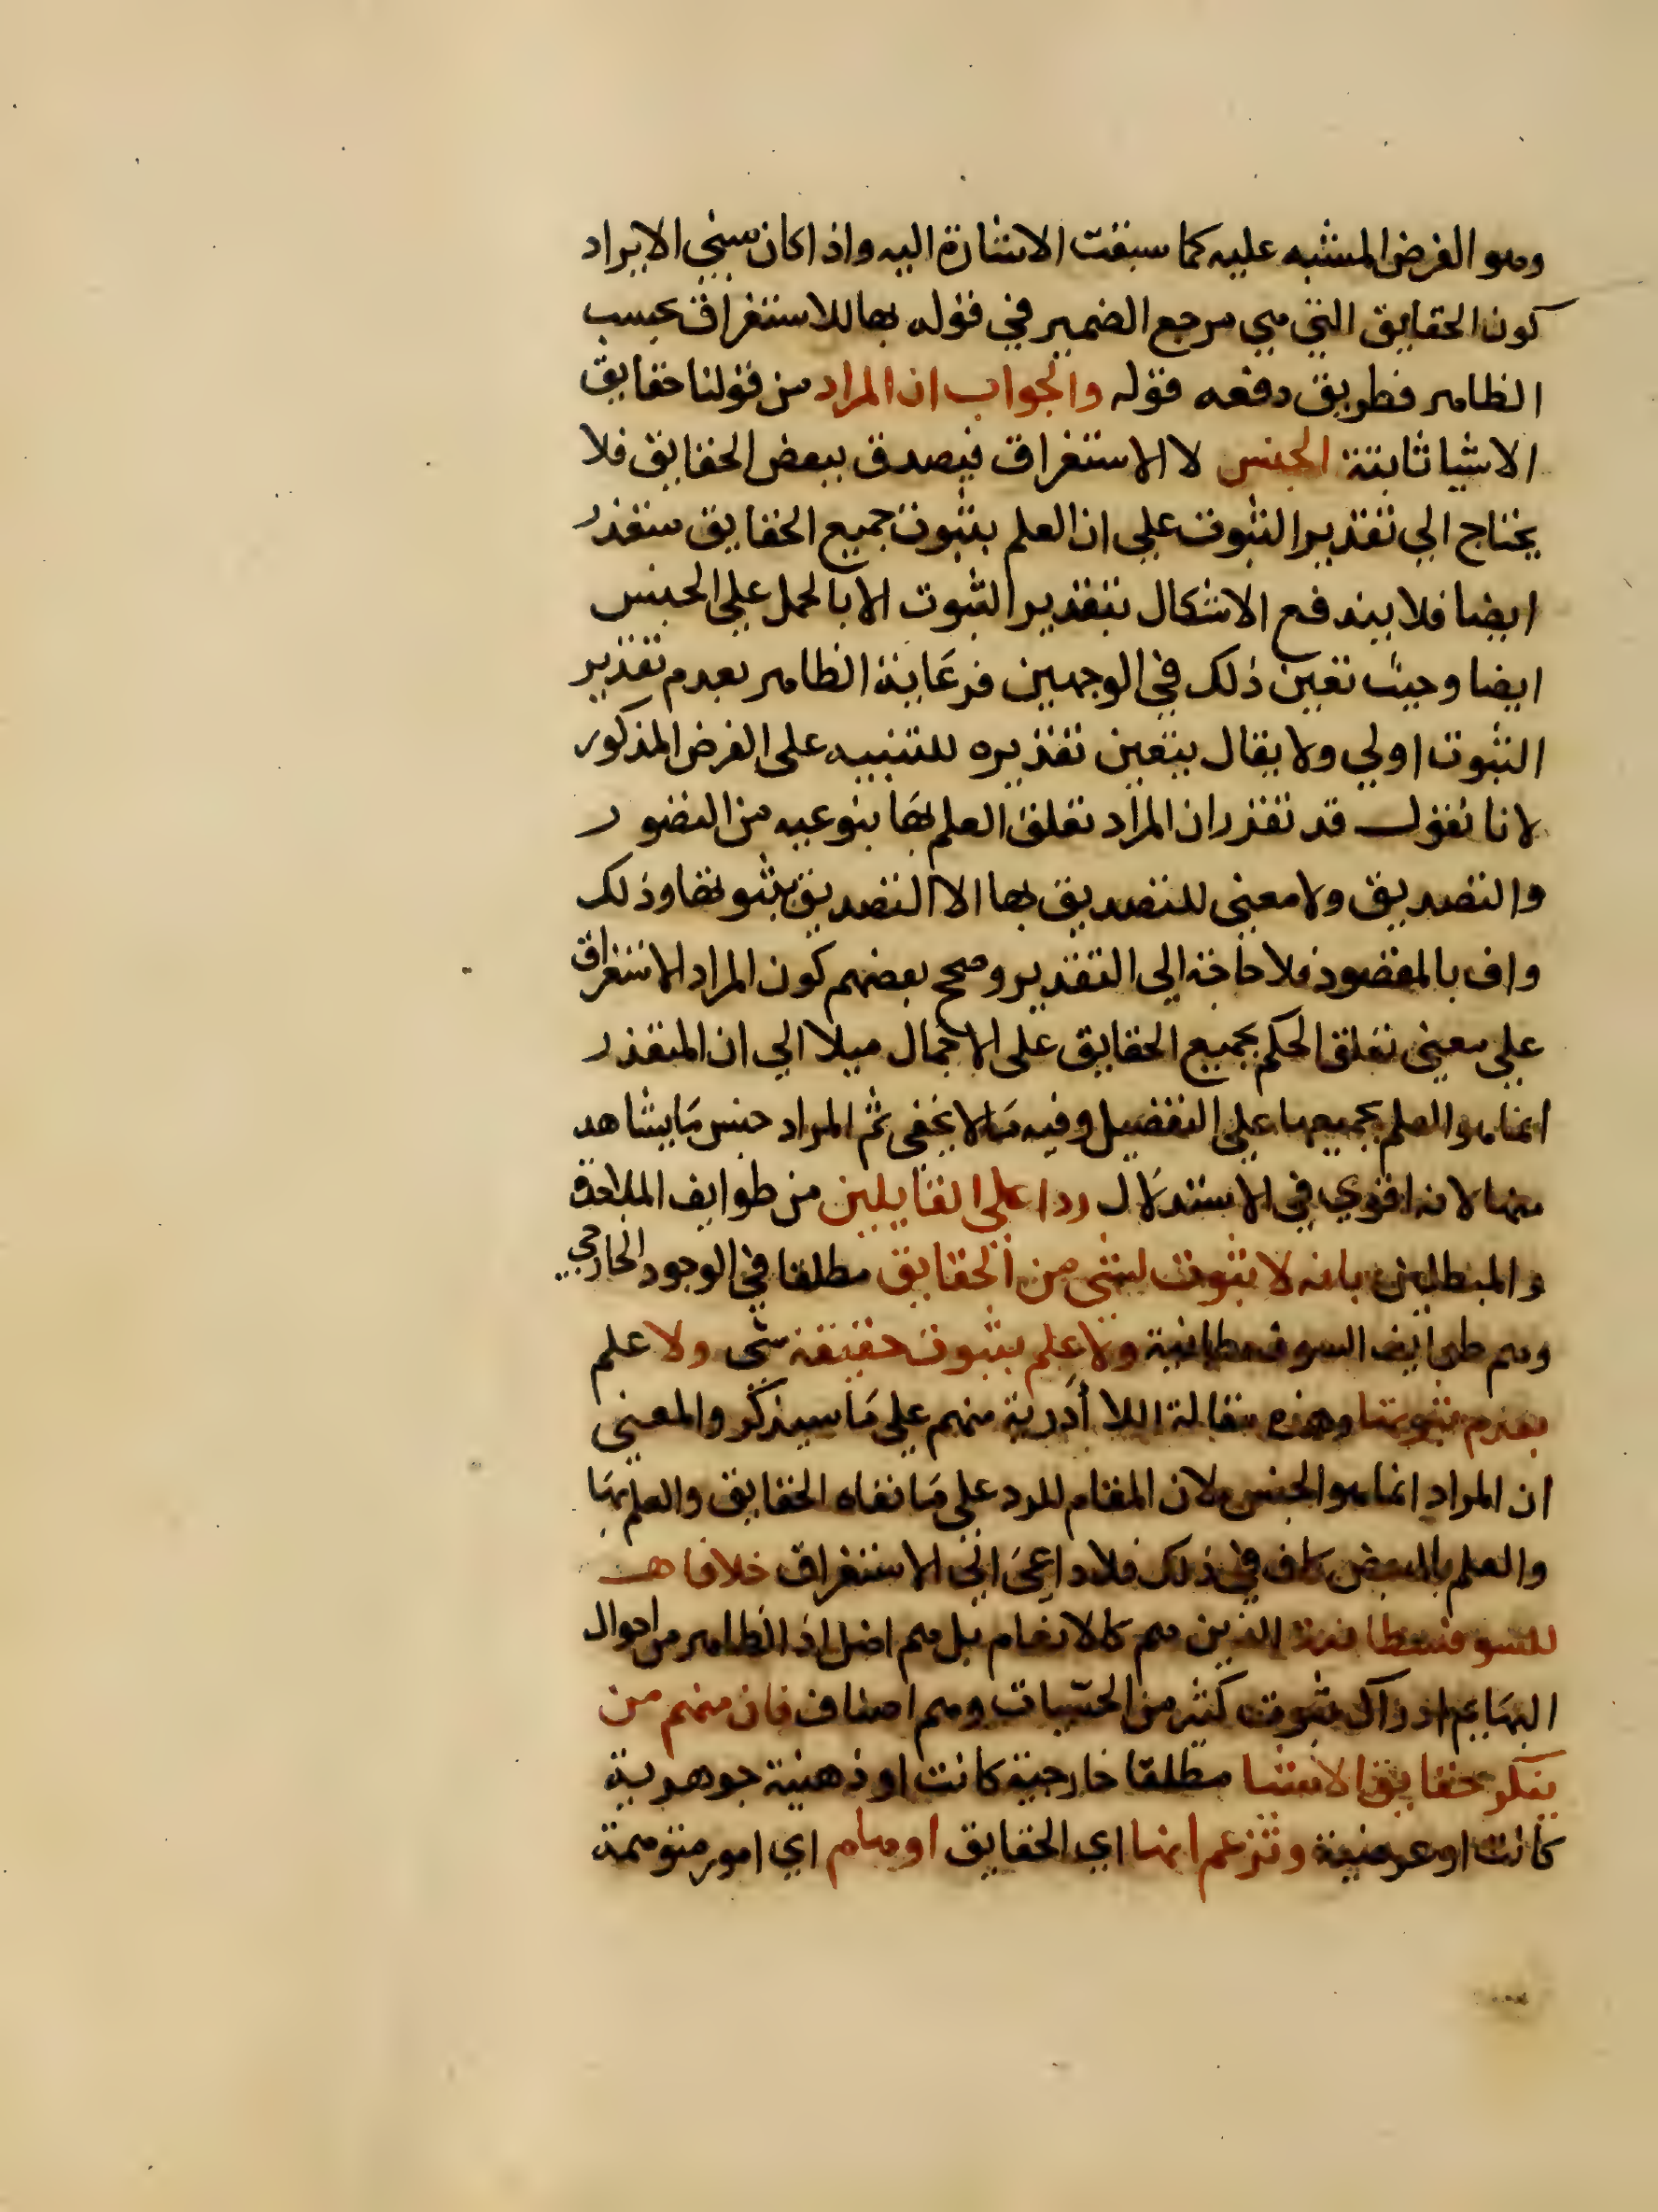 وهو الغرض المنبه عليه كما سبقت الاشارة اليه واذا كان مبني الايراد
كون الحقايق التي هي مرجع الضمير في قوله بها للاستغراق بحسب
الظاهر فطريق دفعه قوله والجواب ان المراد من قولنا حقايق
الاشيا ثابتة الجنس لا الاستغراق فيصدق ببعض الحقايق فلا
يحتاج الي تقدير الثبوت علي ان العلم بثبوت جميع الحقايق متعذر
ايضا فلا يندفع الاشكال بتقدير الثبوت الا بالحمل علي الجنس
ايضا وحيث تعين ذلك في الوجهين فرعاية الظاهر بعدم تقدير
الثبوت اولي ولا يقال يتعين تقديره للتنبيه على الغرض المذكور
لانا نقول قد تقرر ان المراد تعلق العلم بها بنوعيه من التصور
والتصديق ولا معني للتصديق بها الا التصديق بثبوتها وذلك
واف بالمقصود فلا حاجة الي التقدير وصحح بعضهم كون المراد الاستغراق
علي معني تعلق الحكم بجميع الحقايق على الاجمال ميلا الي ان المتعذر
انما هو العلم بجميعها علي التفصيل وفيه ما لا يخفى ثم المراد جنس ما يشاهد
منها لانه اقوي في الاستدلال ردا علي القايلين من طوايف الملاحدة
والمبطلين بانه لا ثبوت لشي من الحقايق مطلقا في الوجود الخارجي
وهم طوايف السوفسطائية ولا علم بثبوت حقيقة شي ولا علم
بعدم ثبوتها وهذه مقالة اللا أدرية منهم علي ما سيذكر والمعني
ان المراد انما هو الجنس لان المقام للرد علي ما نفاه الحقايق والعلم بها
والعلم بالبعض كاف في ذلك فلا داعي الي الاستغراق خلافا هـ
للسوفسطائية الذين هم كالانعام بل هم اضل اذ الظاهر من احوال
البهايم ادراك ثبوت كثير من الحسيات وهم اصناف فان منهم من
ينكر حقايق الاشيا مطلقا خارجية كانت او ذهنية جوهرية
كانت او عرضية وتزعم انها اي الحقايق اوهام اي امور متوهمة